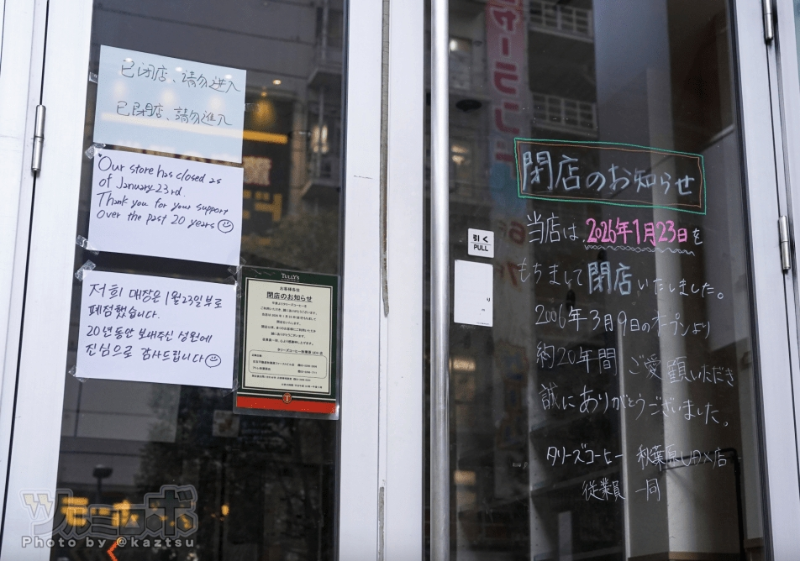 已閉店、請勿進入
已閉店、請勿進入
"Our store has closed as
of January 23rd.
Thank you for your support
over the past 20 years
저희 매장은 1월 23일부로
폐점했습니다.
20년동안 보내주신 성원에
진심으로 감사드립니다
TULLY'S
閉店のお知らせ
引く
PULL
閉店のお知らせ
当店は、2026年1月23日を
もちまして閉店いたしました。
2006年3月9日のオープンより
約20年間 ご愛顧いただき
誠にありがとうございました。
タリーズコーヒー 秋葉原UDX店
従業員一同
ツルミロボ
Photo by @kaztsu